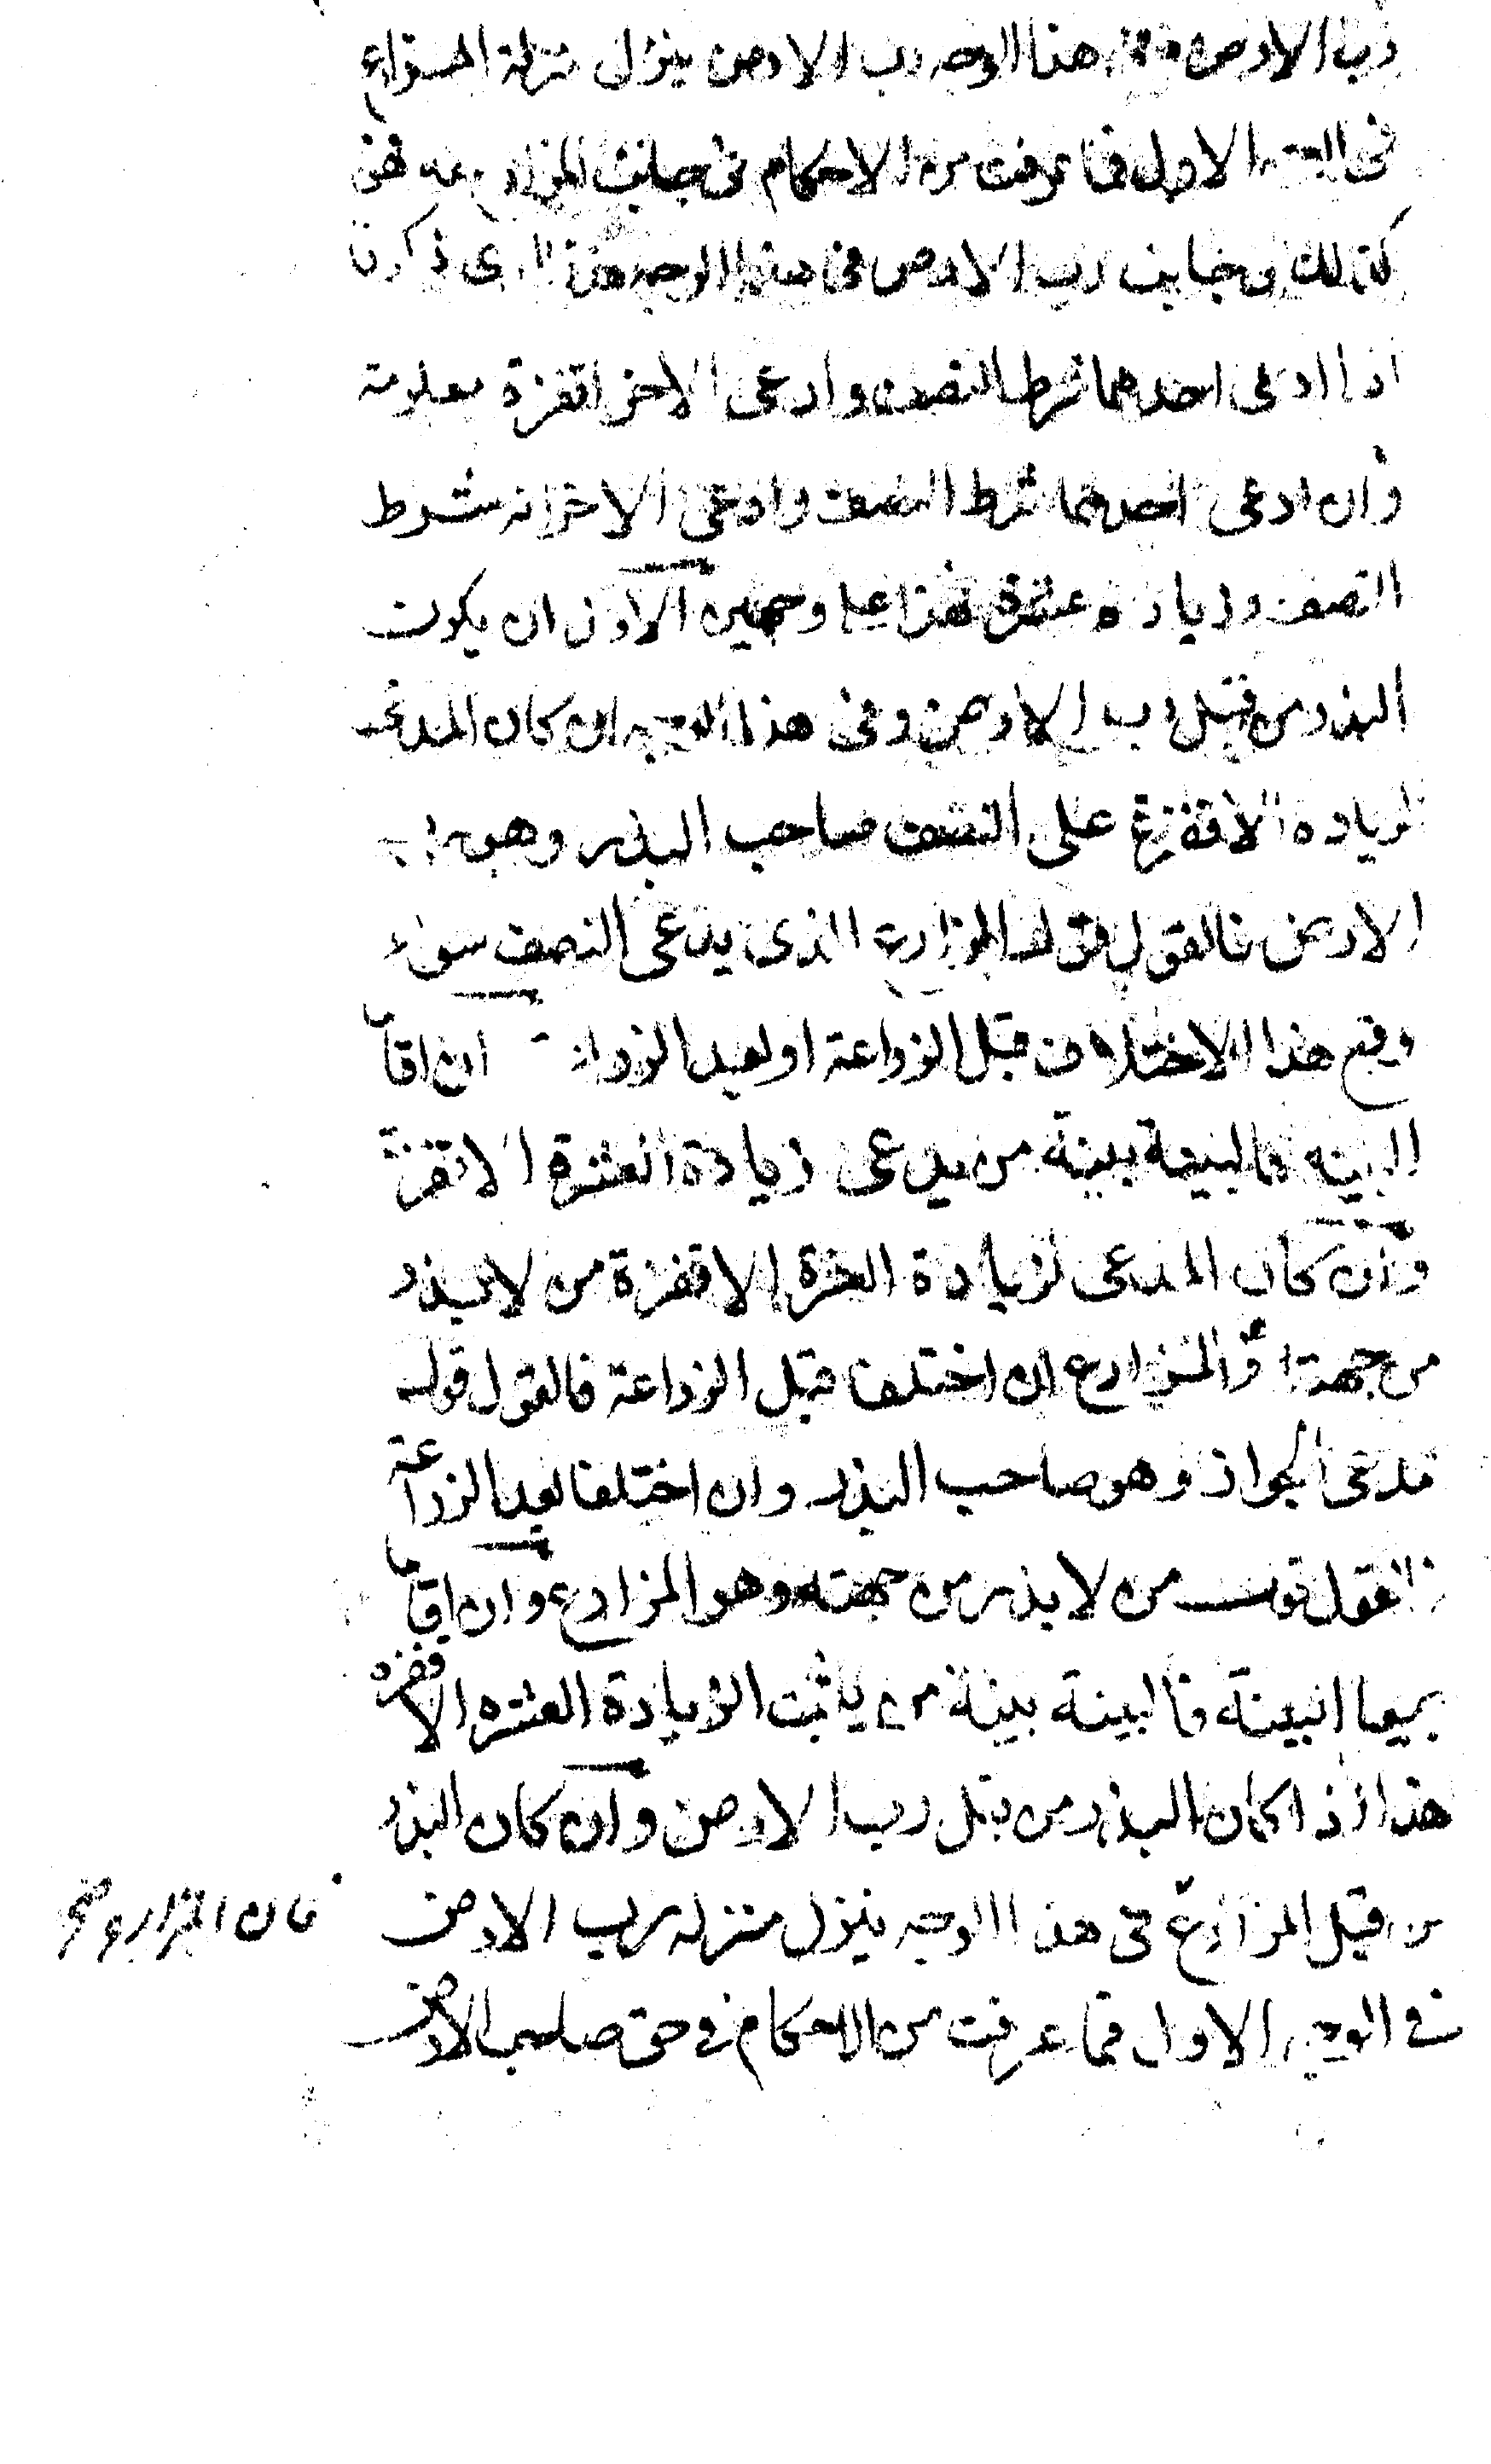 رب الارض وفى هذا الوجه رب الارض ينزل منزلة المزارع
فى الوجه الاول فما عرفت من الاحكام فى جانب المزارع ثمه فهى
كذلك فى جانب رب الارض فى هذا الوجه هذا الذى ذكرنا
اذا ادعى احدهما شرط النصف وادعى الاخر اقفزة معلومة
وان ادعى احدهما شرط النصف وادعى الاخر انه شرط
النصف وزيادة عشرة فهذا على وجهين الاول ان يكون
البذر من قبل رب الارض وفى هذا الوجه ان كان المدعى
لزيادة الاقفزة على النصف صاحب البذر وهو رب
الارض فالقول قول المزارع الذى يدعى النصف سواء
وقع هذا الاختلاف قبل الزراعة او بعد الزراعة ان اقاما
البينه فالبينة بينة من يدعى زيادة العشرة الاقفزة
وان كان المدعى لزيادة العشرة الاقفزة من لا بذر
من جهته وهو المزارع ان اختلفا قبل الزراعة فالقول قول
مدعى الجواز وهو صاحب البذر وان اختلفا بعد الزراعة
فالقول قول من لا بذر من جهته وهو المزارع وان اقاما
جميعا البينة فالبينة بينة من يثبت الزيادة العشره الاقفزه
هذا اذا كان البذر من قبل رب الارض وان كان البذر
من قبل المزارع فى هذا الوجه ينزل منزله رب الارض
فى الوجه الاول فما عرفت من الاحكام فى حق صاحب الارض
فان المزارع صح